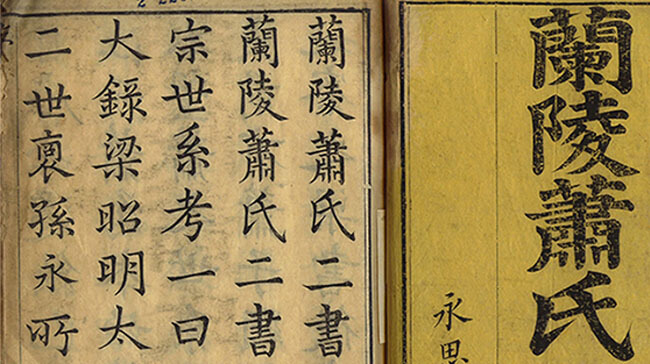 蘭陵蕭氏
永
蘭陵蕭氏二書
蘭陵蕭氏二書
宗世系考一曰
大錄梁昭明太
二世裔孫永所